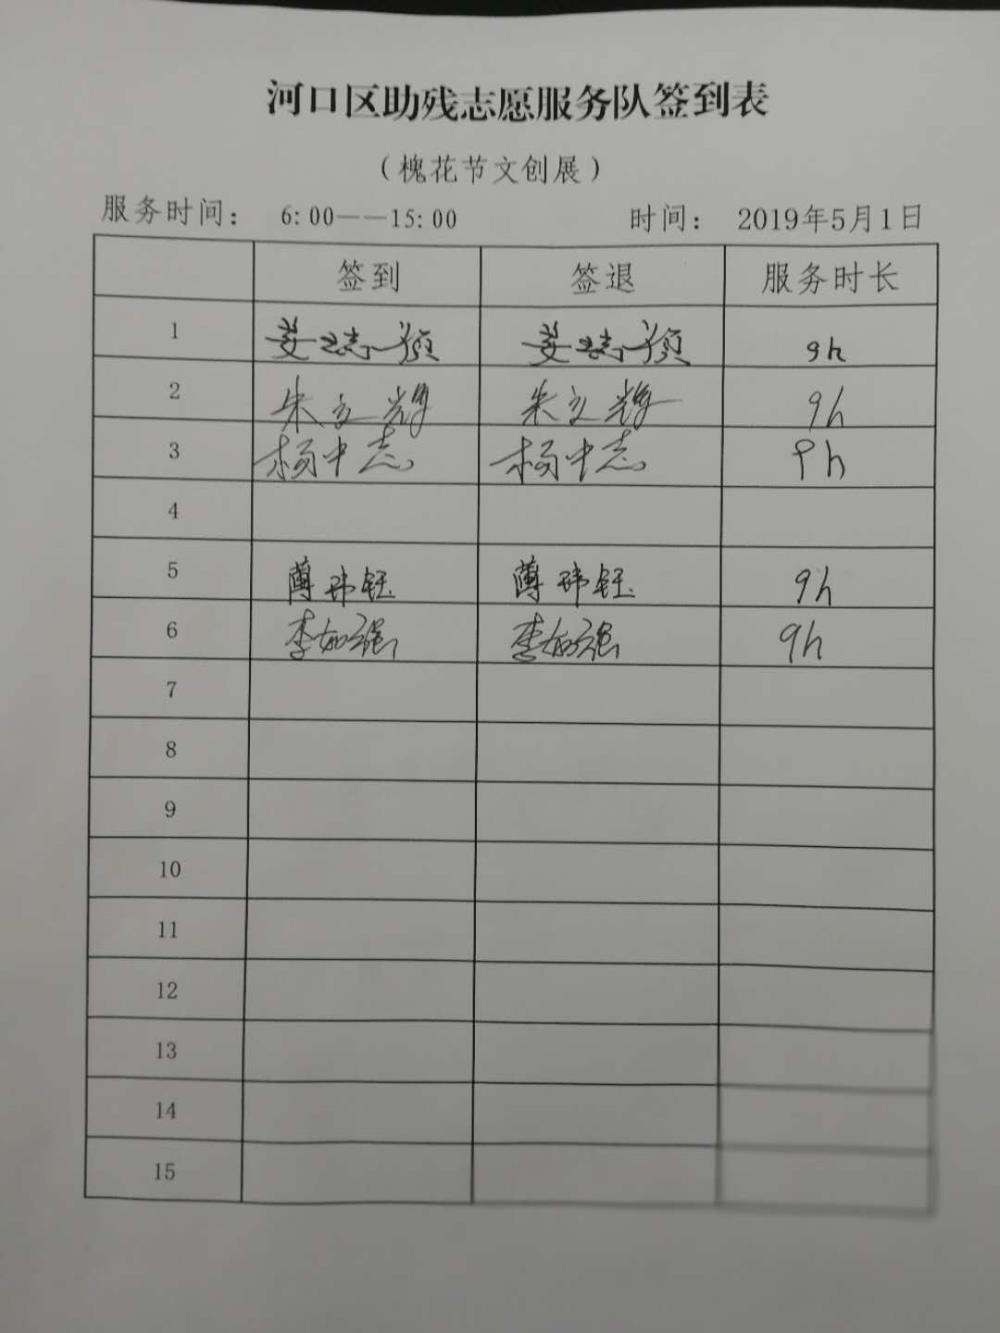 河口区助残志愿服务队签到表
（槐花节文创展）
服务时间： 6:00——15:00 时间： 2019年5月1日
签到 签退 服务时长
1 姜志颀 姜志颀 9h
2 朱文辉 朱文辉 9h
3 杨中志 杨中志 9h
4
5 薄玮钰 薄玮钰 9h
6 李如强 李如强 9h
7
8
9
10
11
12
13
14
15